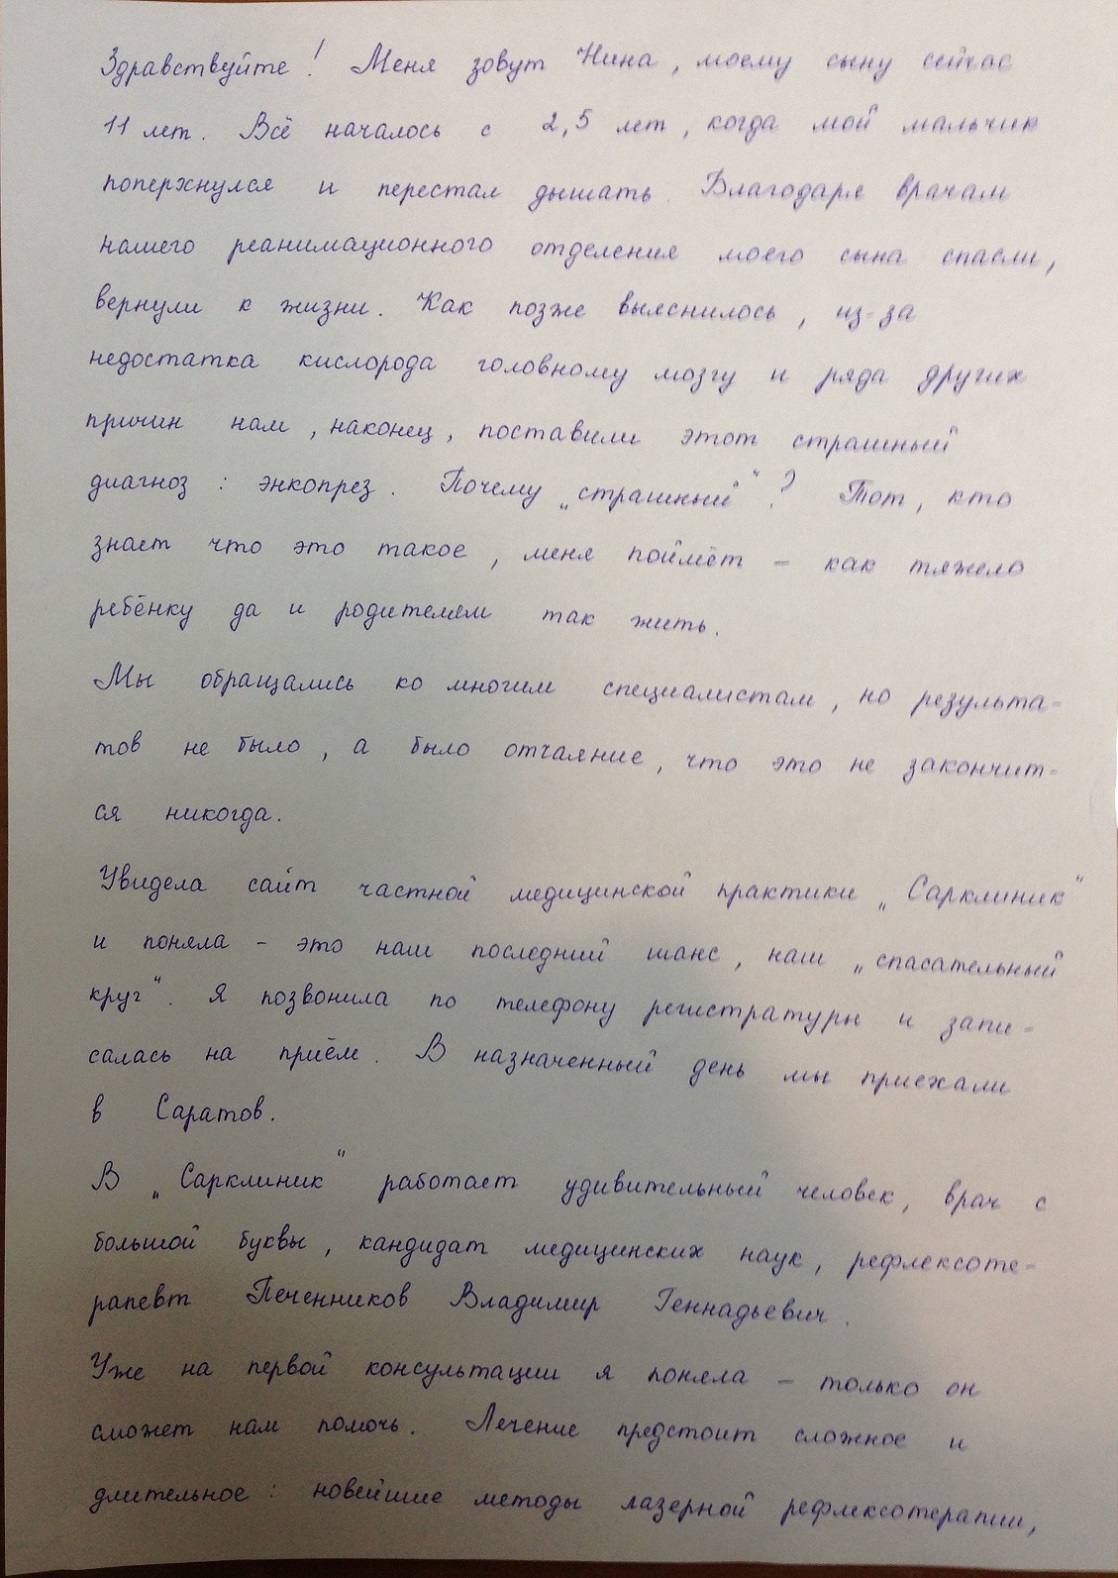 Здравствуйте! Меня зовут Нина, моему сыну сейчас
11 лет. Всё началось с 2,5 лет, когда мой мальчик
поперхнулся и перестал дышать. Благодаря врачам
нашего реанимационного отделения моего сына спасли,
вернули к жизни. Как позже выяснилось, из-за
недостатка кислорода головному мозгу и ряда других
причин нам, наконец, поставили этот страшный
диагноз: энкопрез. Почему „страшный“? Тот, кто
знает что это такое, меня поймёт - как тяжело
ребёнку да и родителям так жить.
Мы обращались ко многим специалистам, но результа-
тов не было, а было отчаяние, что это не закончит-
ся никогда.
Увидела сайт частной медицинской практики „Сарклиник“
и поняла - это наш последний шанс, наш „спасательный
круг“. Я позвонила по телефону регистратуры и запи-
салась на приём. В назначенный день мы приехали
в Саратов.
В „Сарклиник“ работает удивительный человек, врач с
большой буквы, кандидат медицинских наук, рефлексоте-
рапевт Печенников Владимир Геннадьевич.
Уже на первой консультации я поняла - только он
сможет нам помочь. Лечение предстоит сложное и
длительное: новейшие методы лазерной рефлексотерапии,